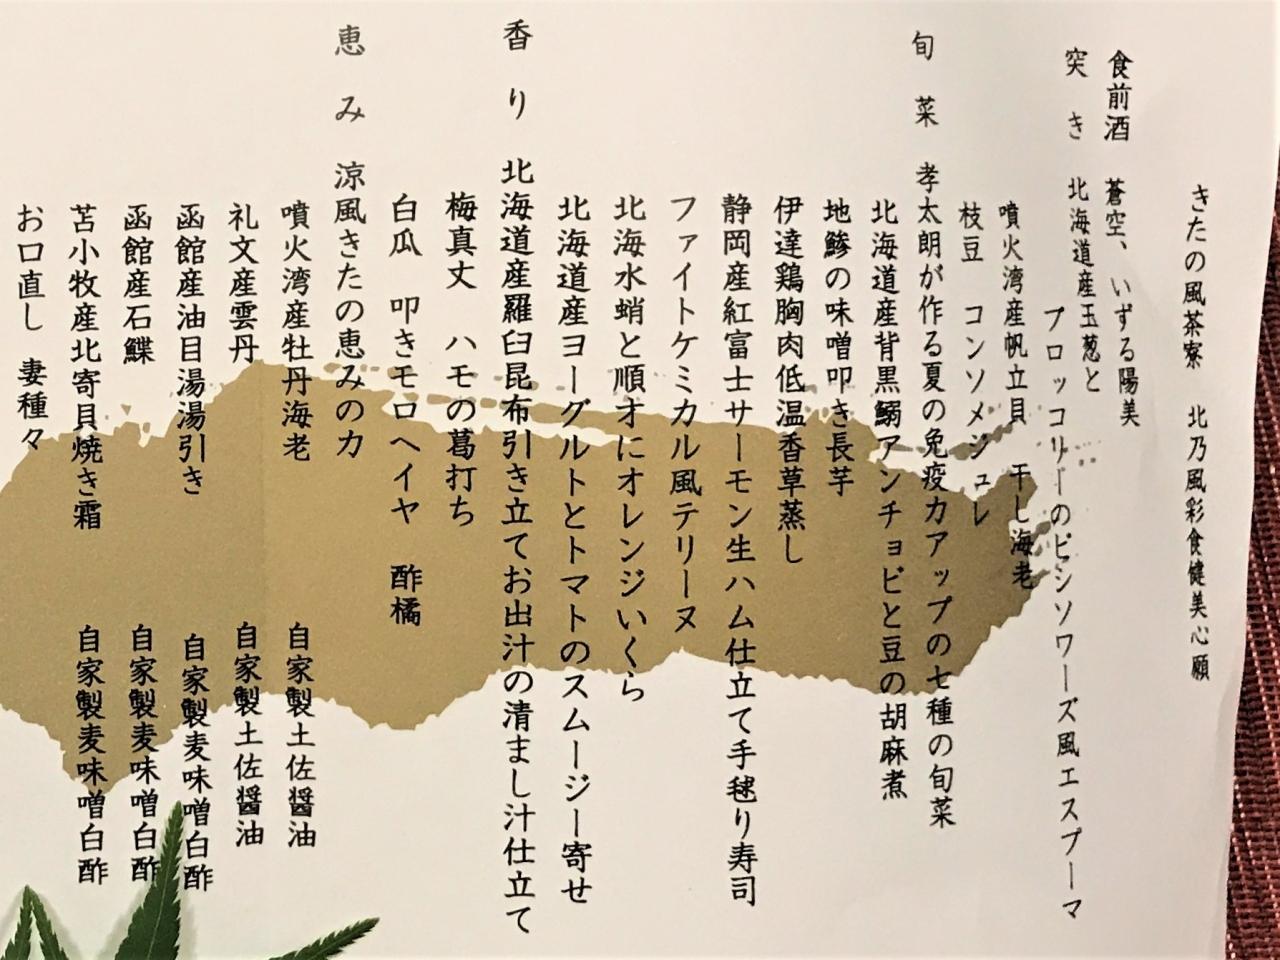 きたの風茶寮　北乃風彩食健美心願
食前酒　蒼空、いずる陽美
突き　北海道産玉葱と
ブロッコリーのビシソワーズ風エスプーマ
噴火湾産帆立貝　干し海老
枝豆　コンソメジュレ
旬菜　孝太朗が作る夏の免疫力アップの七種の旬菜
北海道産背黒鰯アンチョビと豆の胡麻煮
地鯵の味噌叩き長芋
伊達鶏胸肉低温香草蒸し
静岡産紅富士サーモン生ハム仕立て手毬り寿司
ファイトケミカル風テリーヌ
北海水蛸と順才にオレンジいくら
北海道産ヨーグルトとトマトのスムージー寄せ
香り　北海道産羅臼昆布引き立てお出汁の清まし汁仕立て
梅真丈　ハモの葛打ち
白瓜　叩きモロヘイヤ　酢橘
恵み　涼風きたの恵みの力
噴火湾産牡丹海老　自家製土佐醤油
礼文産雲丹　自家製土佐醤油
函館産油目湯湯引き　自家製麦味噌白酢
函館産石鰈　自家製麦味噌白酢
苫小牧産北寄貝焼き霜　自家製麦味噌白酢
お口直し　妻種々